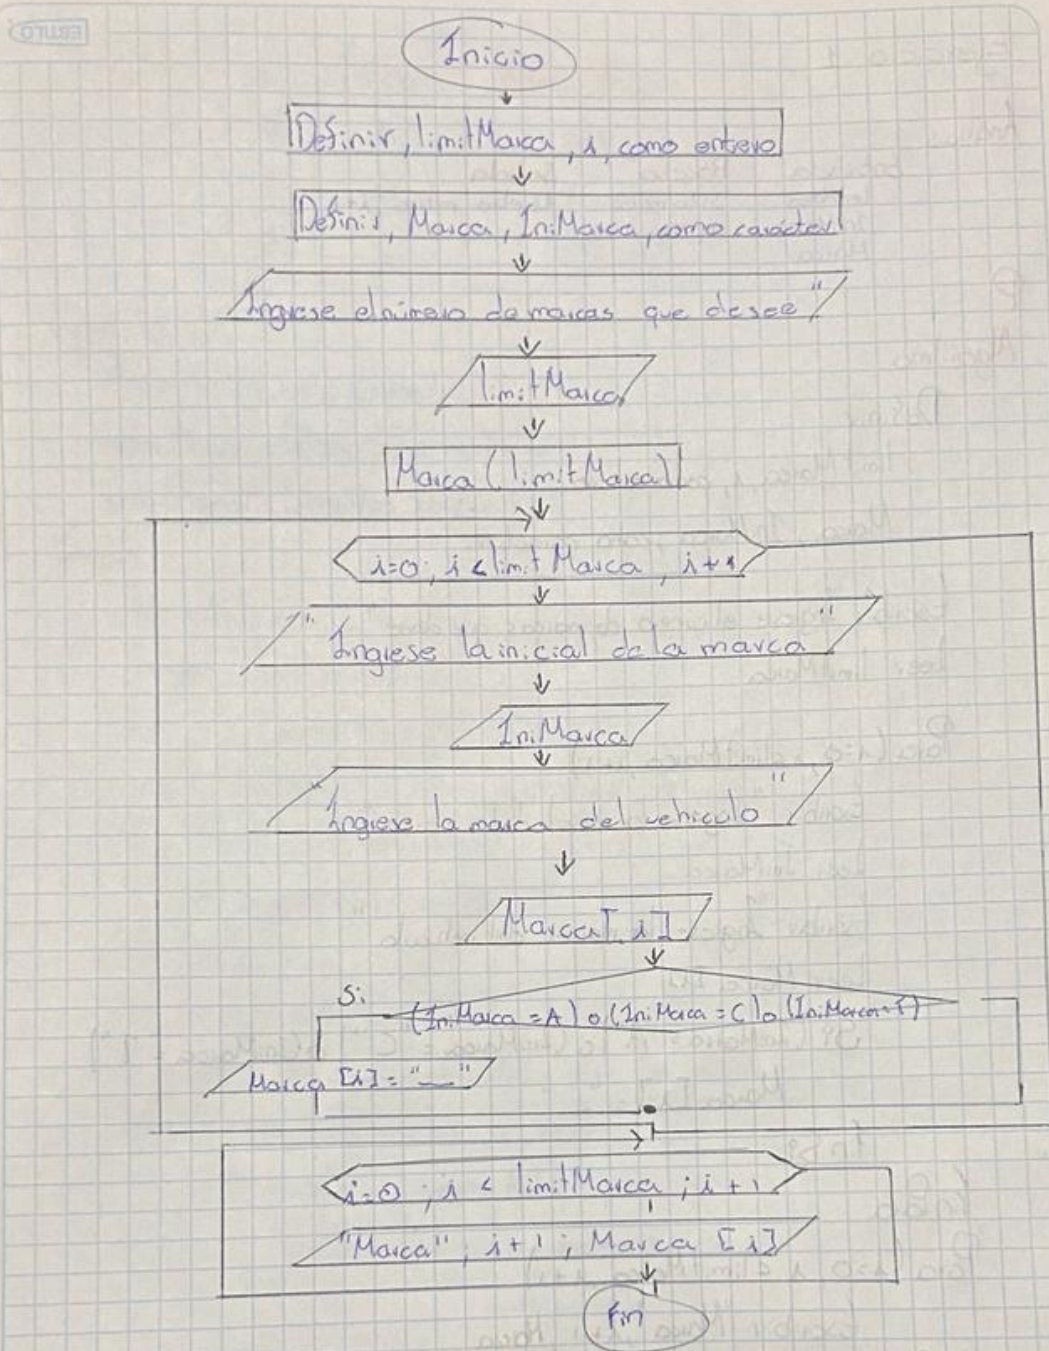 Inicio
Definir, limitMarca, i, como entero
Definir, Marca, IniMarca, como carácter
Ingrese el número de marcas que desee"
limitMarca
Marca (limitMarca)
i=0; i < limit Marca, i+1
"Ingrese la inicial de la marca"
IniMarca
"Ingrese la marca del vehiculo"
Marca[i]
Si
(IniMarca = A) o (IniMarca = C) o (IniMarca=T)
Marca [i] = "__"
i=0; i < limitMarca; i+1
"Marca", i+1; Marca [i]
Fin